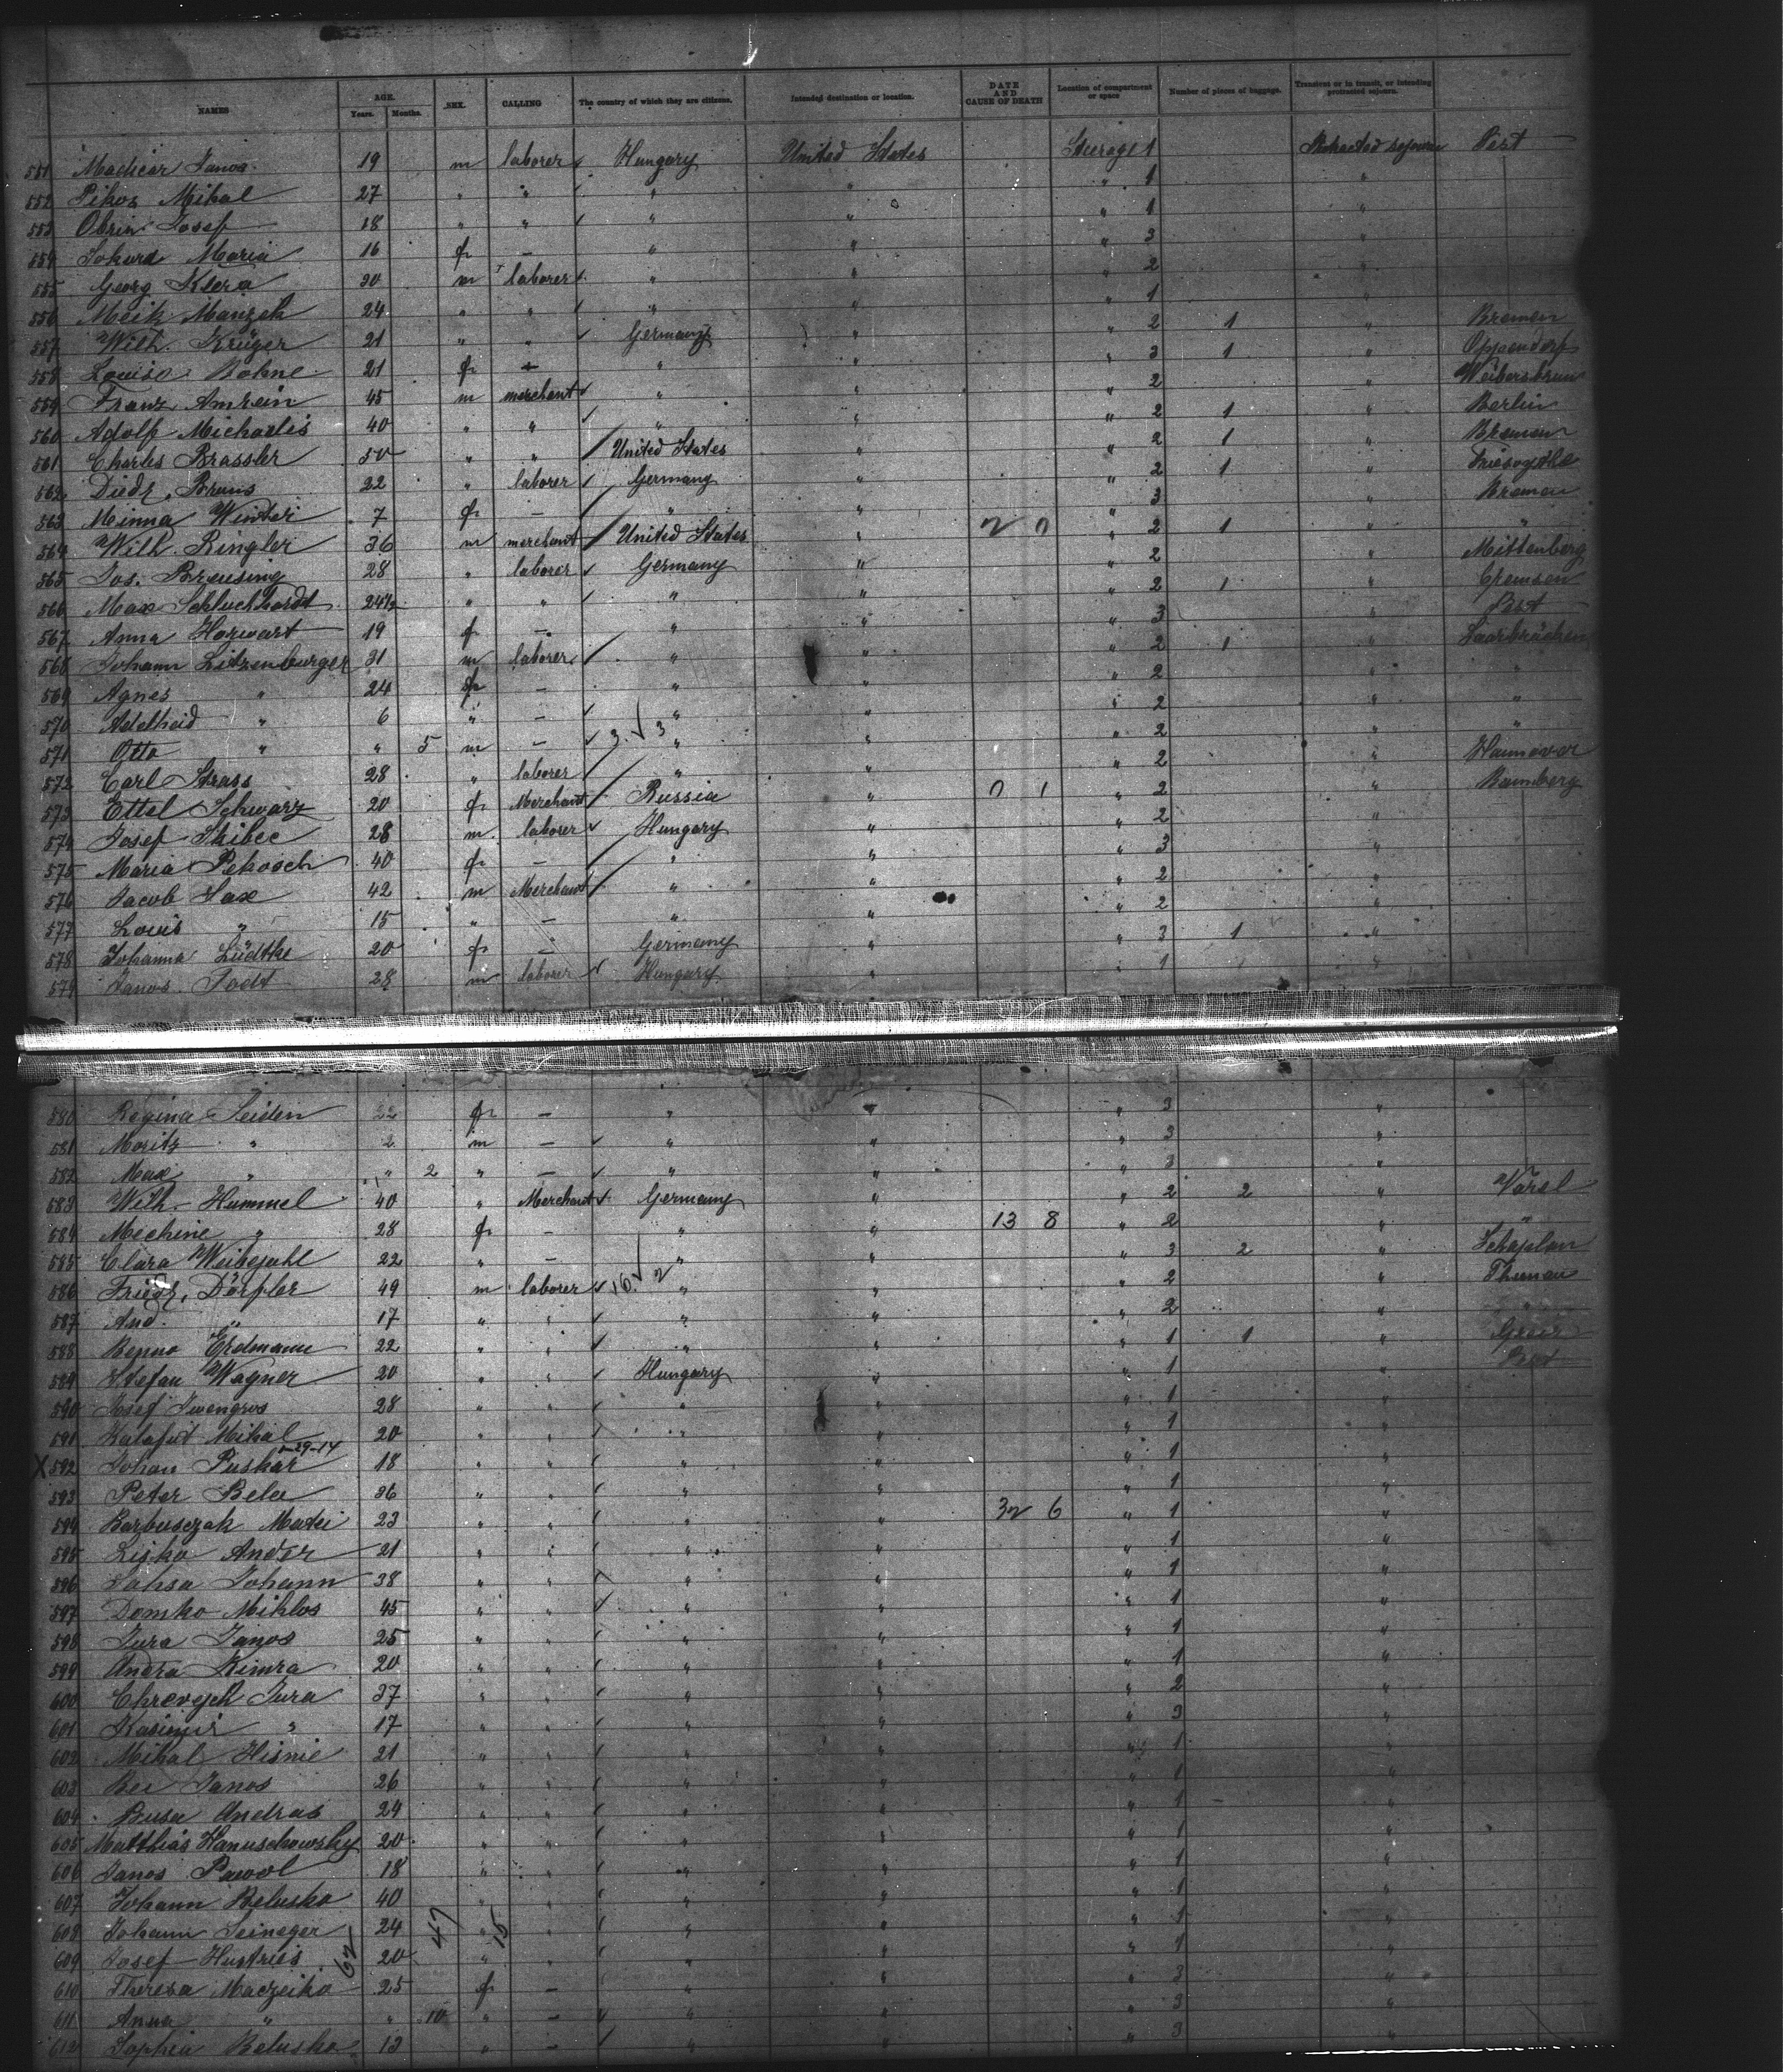 NAMES AGE. Years. Months. SEX. CALLING The country of which they are citizens. Intended destination or location. DATE AND CAUSE OF DEATH Location of compartment or space Number of pieces of baggage. Transient or in transit, or intending protracted sojourn.
551 Janos 19 m laborer Hungary United States Steerage 1 Protracted sojourn Pest
552 Pikos Mihal 27 " " " " " 1 "
553 Josef 18 " " " " " 1 "
554 Maria 16 f — " " " 3 "
555 Georg Klera 30 m laborer " " " 2 "
556 24 " " " " " 1 "
557 Wilh. Krüger 21 " " Germany " " 2 1 " Bremen
558 Louise Bohne 21 f — " " " 3 1 " Oppendorf
559 Franz Amrein 45 m merchant " " " 2 " Weibersbrun
560 Adolf Michaelis 40 " " " " " 2 1 " Berlin
561 Charles Brassler 50 " " United States " " 2 1 " Bremen
562 Diedr. Bruns 22 " laborer Germany " " 2 1 " Friesoythe
563 Minna Winter 7 f — " " " 3 " Bremen
564 Wilh. Ringler 36 m merchant United States " " 2 1 " "
565 Jos. Breusing 28 " laborer Germany " " 2 " Mittenberg
566 Max Schluchhardt 24 " " " " " 2 1 "
567 Anna Horwart 19 f — " " " 3 " Pest
568 Johann Litzenburger 31 m laborer " " " 2 1 " Saarbrücken
569 Agnes " 24 f — " " " 2 " "
570 Adelheid " 6 " — " " " 2 " "
571 Otto " " 5 m — 3 3 " " " 2 " "
572 Carl Strass 28 " laborer " " " 2 " Hannover
573 Ettel Schwarz 20 f Merchant Russia " 0 1 " 2 " Bamberg
574 Josef Skibec 28 m laborer Hungary " " 2 "
575 Maria Pekosch 40 f — " " " 3 "
576 Jacob Sax 42 m Merchant " " " 2 "
577 Louis " 15 " — " " " 2 "
578 Johanna Lüdtke 20 f — Germany " " 3 1 "
579 Janos Todt 28 m laborer Hungary " " 1 "
580 Regina Seiden 22 f — " " " 3 "
581 Moritz " 2 m — " " " 3 "
582 Max " " 2 " — " " " 3 "
583 Wilh. Hummel 40 " Merchant Germany " " 2 2 " Varel
584 Mechine " 28 f — " " 13 8 " 2 " "
585 Clara Weibezahl 22 " — " " " 3 2 "
586 Friedr. Dörfler 49 m laborer 16 2 " " " 2 " Thurnau
587 And. " 17 " " " " " 2 " "
588 Benno Erdmann 22 " " " " " 1 1 "
589 Stefan Wagner 20 " " Hungary " " 1 " Pest
590 Josef 28 " " " " " 1 "
591 Kalafut Mihal 20 " " " " " 1 "
1-29-14
X 592 Johan Puskar 18 " " " " " 1 "
593 Peter Bela 36 " " " " " 1 "
594 Matei 23 " " " " 32 6 " 1 "
595 Lisko Ander 21 " " " " " 1 "
596 Johann 38 " " " " " 1 "
597 Domko Miklos 45 " " " " " 1 "
598 Jura Janos 25 " " " " " 1 "
599 Andra Kimra 20 " " " " " 1 "
600 Jura 37 " " " " " 2 "
601 Kasimir " 17 " " " " " 3 "
602 Mihal Hisnie 21 " " " " " 1 "
603 Bei Janos 26 " " " " " 1 "
604 Busa Andras 24 " " " " " 1 "
605 Matthias Hanuschowsky 20 " " " " " 1 "
606 Janos Pawol 18 " " " " " 1 "
607 Johann Belusko 40 " " " " " 1 "
608 Johann Seineger 24 " " " " " 1 "
609 Josef 20 " " " " " 1 "
62 47 15
610 Theresa Maczeiko 25 f — " " " 3 "
611 Anna " " 10 " — " " " 3 "
612 Sophia Belusko 13 " — " " " 3 "